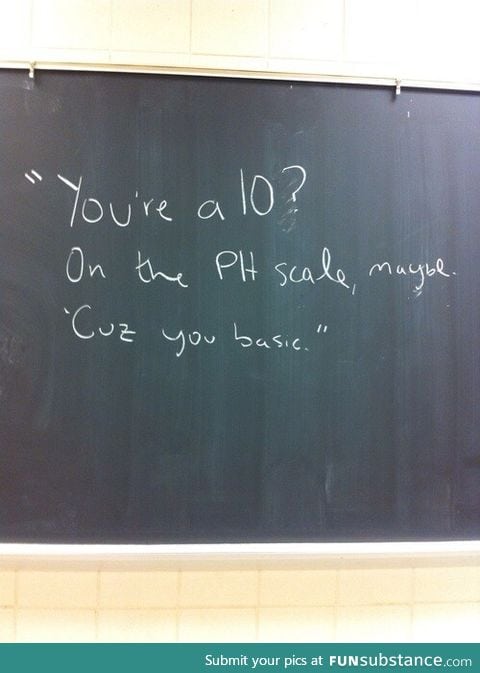 "You're a 10?
On the PH scale, maybe.
'Cuz you basic."
Submit your pics at FUNsubstance.com